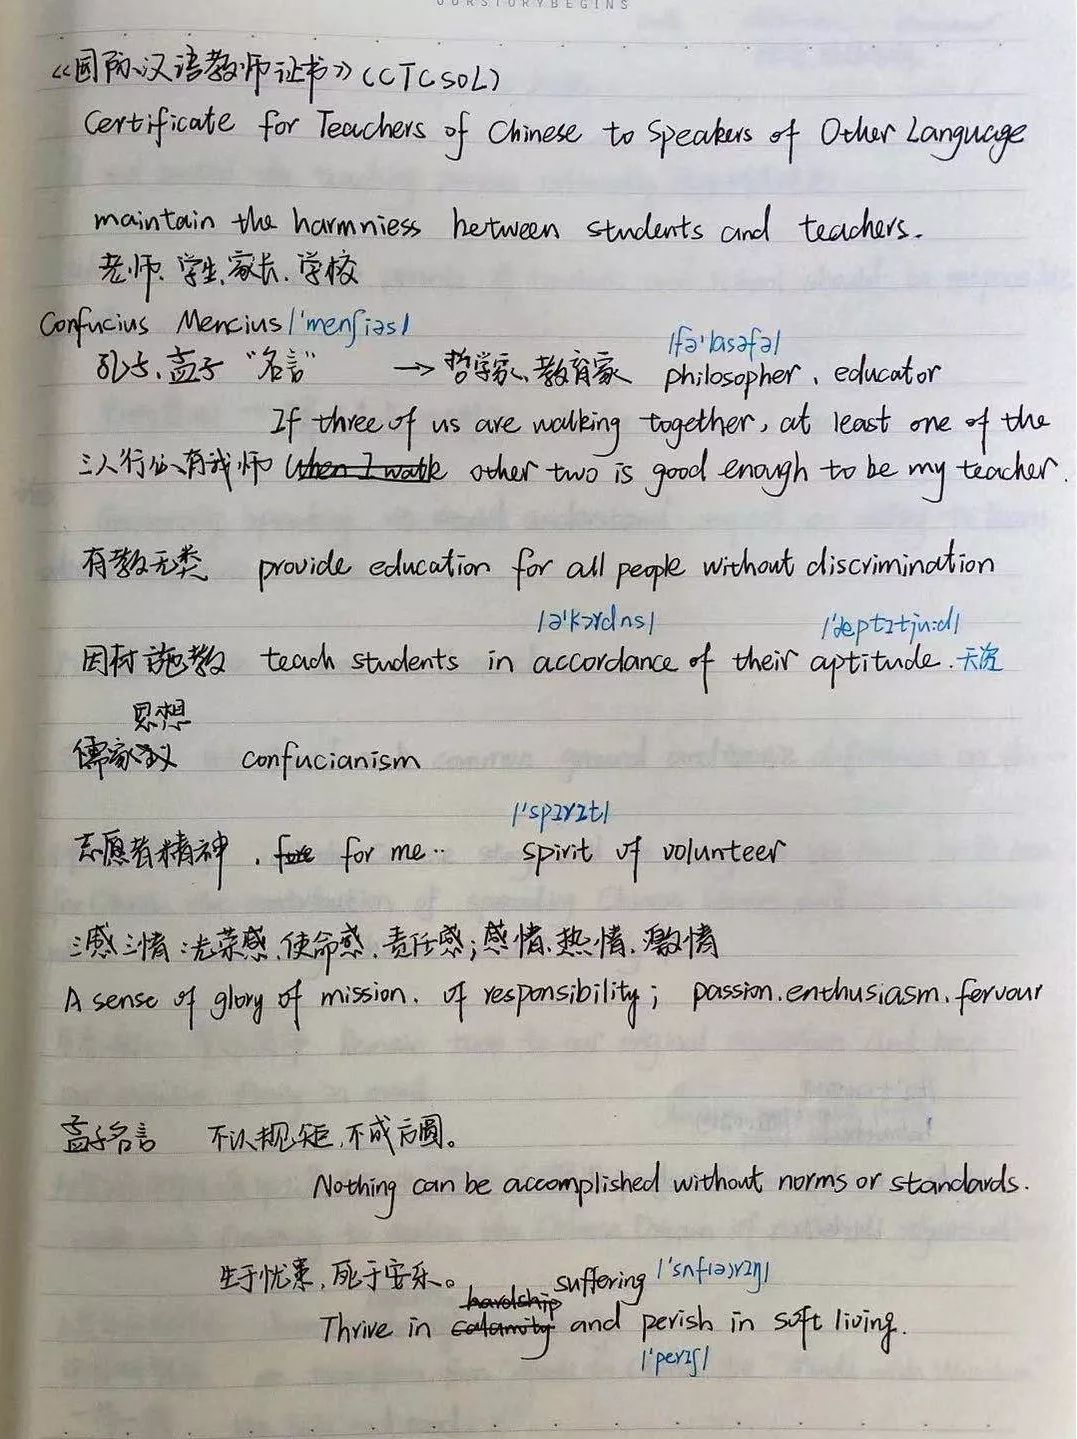 OURSTORYBEGINS
《国际汉语教师证书》(CTCSOL)
Certificate for Teachers of Chinese to Speakers of Other Language
maintain the harmniess between students and teachers.
老师、学生、家长、学校
Confucius Mencius /ˈmenʃiəs/
/fəˈlɑsəfə/
孔子、孟子 "名言" → 哲学家、教育家 philosopher、educator
If three of us are walking together, at least one of the
三人行必有我师 When I walk other two is good enough to be my teacher.
有教无类 provide education for all people without discrimination
/əˈkɔrdns/ /ˈæptɪtjuːd/
因材施教 teach students in accordance of their aptitude. 天资
思想
儒家主义 confucianism
/ˈspɪrɪt/
志愿者精神 . for me.. spirit of volunteer
三感三情:光荣感、使命感、责任感;感情、热情、激情
A sense of glory of mission. of responsibility; passion.enthusiasm.fervour
孟子名言 不以规矩,不成方圆。
Nothing can be accomplished without norms or standards.
生于忧患,死于安乐。
hardship suffering /ˈsʌf(ə)rɪŋ/
Thrive in calamity and perish in soft living.
/ˈperɪʃ/